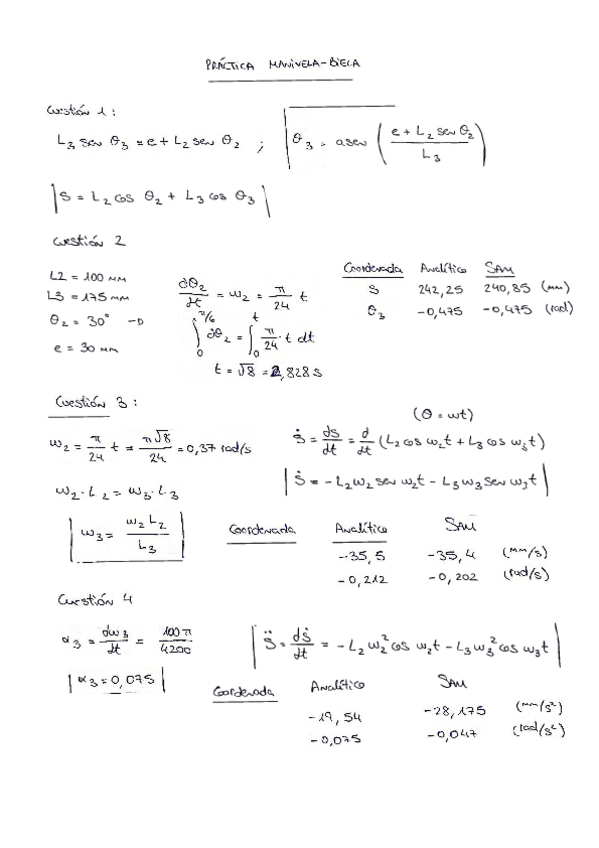 PRÁCTICA MANIVELA-BIELA
Cuestión 1:
L₃ sen θ₃ = e + L₂ sen θ₂ ; θ₃ = asen ( (e + L₂ sen θ₂) / L₃ )
S = L₂ cos θ₂ + L₃ cos θ₃
Cuestión 2
L2 = 100 mm
L3 = 175 mm
θ₂ = 30° →
e = 30 mm
dθ₂/dt = ω₂ = π/24 t
∫₀^(π/6) dθ₂ = ∫₀^t π/24 · t dt
t = √8 = 2,828 s
Coordenada Analítico SAM
S 242,25 240,85 (mm)
θ₃ -0,475 -0,475 (rad)
Cuestión 3:
ω₂ = π/24 t = π√8/24 = 0,37 rad/s
ω₂·L₂ = ω₃·L₃
ω₃ = ω₂L₂/L₃
(θ = ωt)
Ṡ = ds/dt = d/dt (L₂ cos ω₂t + L₃ cos ω₃t)
Ṡ = -L₂ω₂ sen ω₂t - L₃ω₃ sen ω₃t
Coordenada Analítico SAM
-35,5 -35,4 (mm/s)
-0,212 -0,202 (rad/s)
Cuestión 4
α₃ = dω₃/dt = 100π/4200
α₃ = 0,075
S̈ = dṡ/dt = -L₂ω₂² cos ω₂t - L₃ω₃² cos ω₃t
Coordenada Analítico SAM
-19,54 -28,175 (mm/s²)
-0,075 -0,047 (rad/s²)